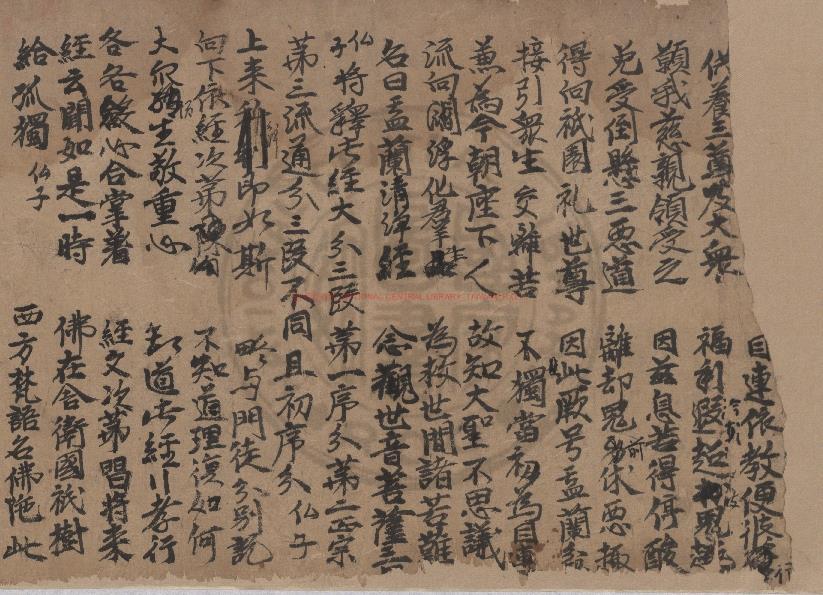 目連依教便
供養三尊及大眾 福利
願我慈親領受之 因茲息苦得停酸
免受倒懸三惡道 離却鬼前休惡趣
得向祇園礼世尊 因此厥号盂蘭
接引衆生交離苦 不獨當初為目連
兼為今朝座下人 故知大聖不思議
流向閻浮化羣生 為救世間諸苦難
名曰盂蘭清淨經 念觀世音菩薩
仏子 將釋此經大分三段 第一序分 第二正宗
第三流通分 三段不同 且初序分 仏子
上来 即如斯 略与門徒分別說
向下依經次第 不知道理復如何
大眾 生敬重心 知道此經行孝行
各各發心合掌著 經文次第唱將来
經云聞如是一時 佛在舍衛國祇樹
給孤獨 仏子 西方梵語名佛陁 此
CENTRAL LIBRARY, TAIWAN